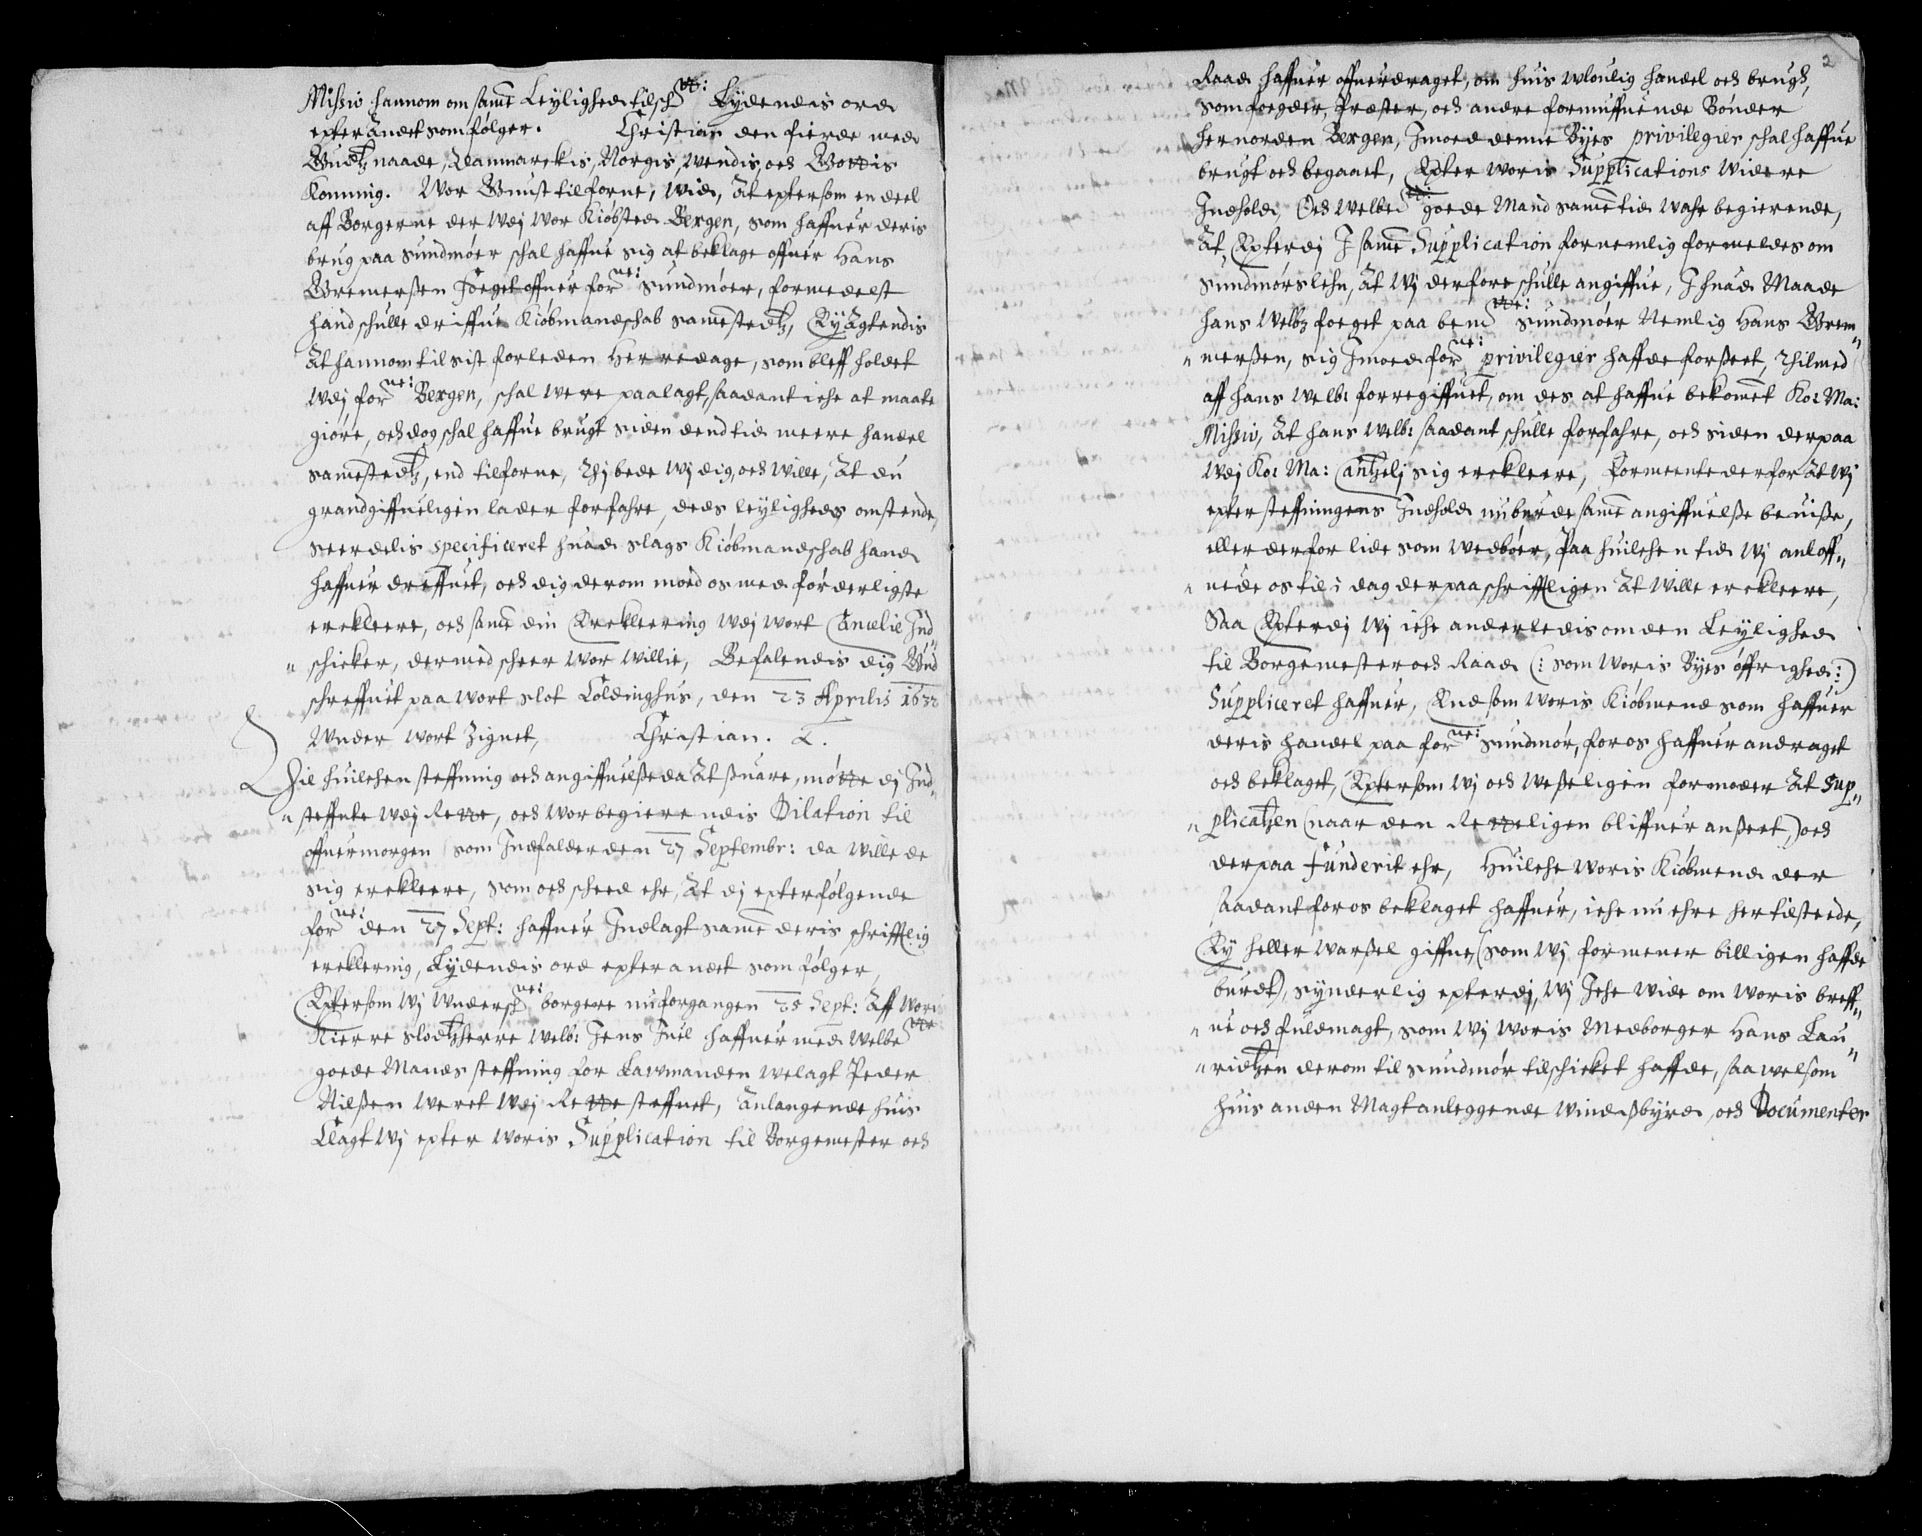 Missiv hannom om samme Leylighed tilsch: te: Lydendis ord
epter andet som følger. Christian den fierde med
Gudtz naade, Danmarckis, Norgis, Wendis, och Gottis
Konning. Wor Gunst tilforne, wid, At eptersom en deel
aff Borgerne der wdj wor Kiøbsted Bergen, som haffuer deris
brug paa Sundmøer schal haffue sig at beklage offuer Hans
Gremerßen foeget offuer forne: Sundmøer, formedelst
hand schulle driffue Kiøbmandschab sammestedtz, Ey Agtendis
At hannom til sist forleden Herredage, som bleff holdet
wdj forne: Bergen, schal were paalagt, saadant iche at maate
giøre, och dog schal haffue brugt siden dend tid meere handel
sammestedtz, end tilforne, Thj bede wj dig, och wille, At du
grandgiffueligen lader forfahre, deds leyligheds omstende,
Seerdelis specificeret huad slags Kiøbmandschab hand
haffuer dreffuet, och dig derom moed os med forderligste
erekleere, och samme din Erekleering wdj wort Cancelie Ind„
„ schicker, dermed scheer wor willie, Befalendis dig Gud
schreffuet paa wort slot Coldinghus, den 23 Aprilis 1632
wnder wort Zignet, Christian. 4.
Til huilchen steffning och angiffuelße da At suare, møtte dj Ind„
„ steffnte wdj Rette, och wor begierendis Dilation til
offuermorgen som Indfalder den 27 Septembr: da wille de
sig erekleere, som och scheed ehr, At dj epterfølgende
forne: den 27 Sept: haffuer Indlagt samme deris schrifftlig
ereklering, Lydendis ord epter andet som følger,
Eptersom wj wndersch ne: borgere nu forgangen 25 Sept: Aff woris
Kierre slodtzherre welb: Jens Juel haffuer med welbte
goede Mands steffning for Lawmanden welagt Peder
Nilßen weret wdj Rette steffnet, Anlangende huis
Clagt wj epter woris Supplication til Borgemester och
2
Raad haffuer offuerdraget, om huis wlouglig handel och brug,
som foegder, Præster, och andre formuffuende Bønder
her norden Bergen, Jmoed denne Byes privilegier schal haffue
brugt och begaaet, Epter woris Supplications widere
Indhold, Och welbte: goede Mand samme tid wahr begierende,
At, Epterdj J samme Supplication fornemlig formeldes om
Sundmørslehn, At wj derfore schulle angiffue, J huad Maade
hans welb: foeget paa bemte: Sundmøer Nemlig Hans Grem„
„ merßen, sig Jmoed forne: privilegier haffde forßeet, Thilmed
aff hans welb: forregiffuet, om des at haffue bekommet Ko: Ma:
Missiv, At hans welb: saadant schulle forfahre, och siden derpaa
wdj Ko: Ma: Cantzelj sig erekleere, Formeente derfor At wj
epter steffningens Indhold nu burde samme angiffuelße beuiße,
eller derfor lide som wedbøer, paa huilchen tid wj anloff„
„ uede os til i dag derpaa schrifftligen At wille erekleere,
Saa Epterdj wj iche anderledis om den Leylighed
til Borgemester och Raad (: som woris Byes øffrighed :)
Suppliceret haffuer, End som woris Kiøbmend som haffuer
deris handel paa forne: Sundmør, for os haffuer andraget
och beklaget, Eptersom wj och weßeligen formoder At Sup„
„ plicatzen (naar den Retteligen bliffuer anßeet,) och
derpaa funderit ehr, Huilche woris Kiøbmend der
saadant for os beklaget haffuer, iche nu ehre her tilstede,
Ey heller warßel giffuet, (som wj formener billigen haffde
burdt), synderlig epterdj, wj Iche wide om woris breff„
„ ue och fuldmagt, som wj woris Medborger Hans Lau„
„ ridtzen derom til Sundmør tilschicket haffde, saa welsom
huis anden Magtanleggende windißbyrd, och Documenter